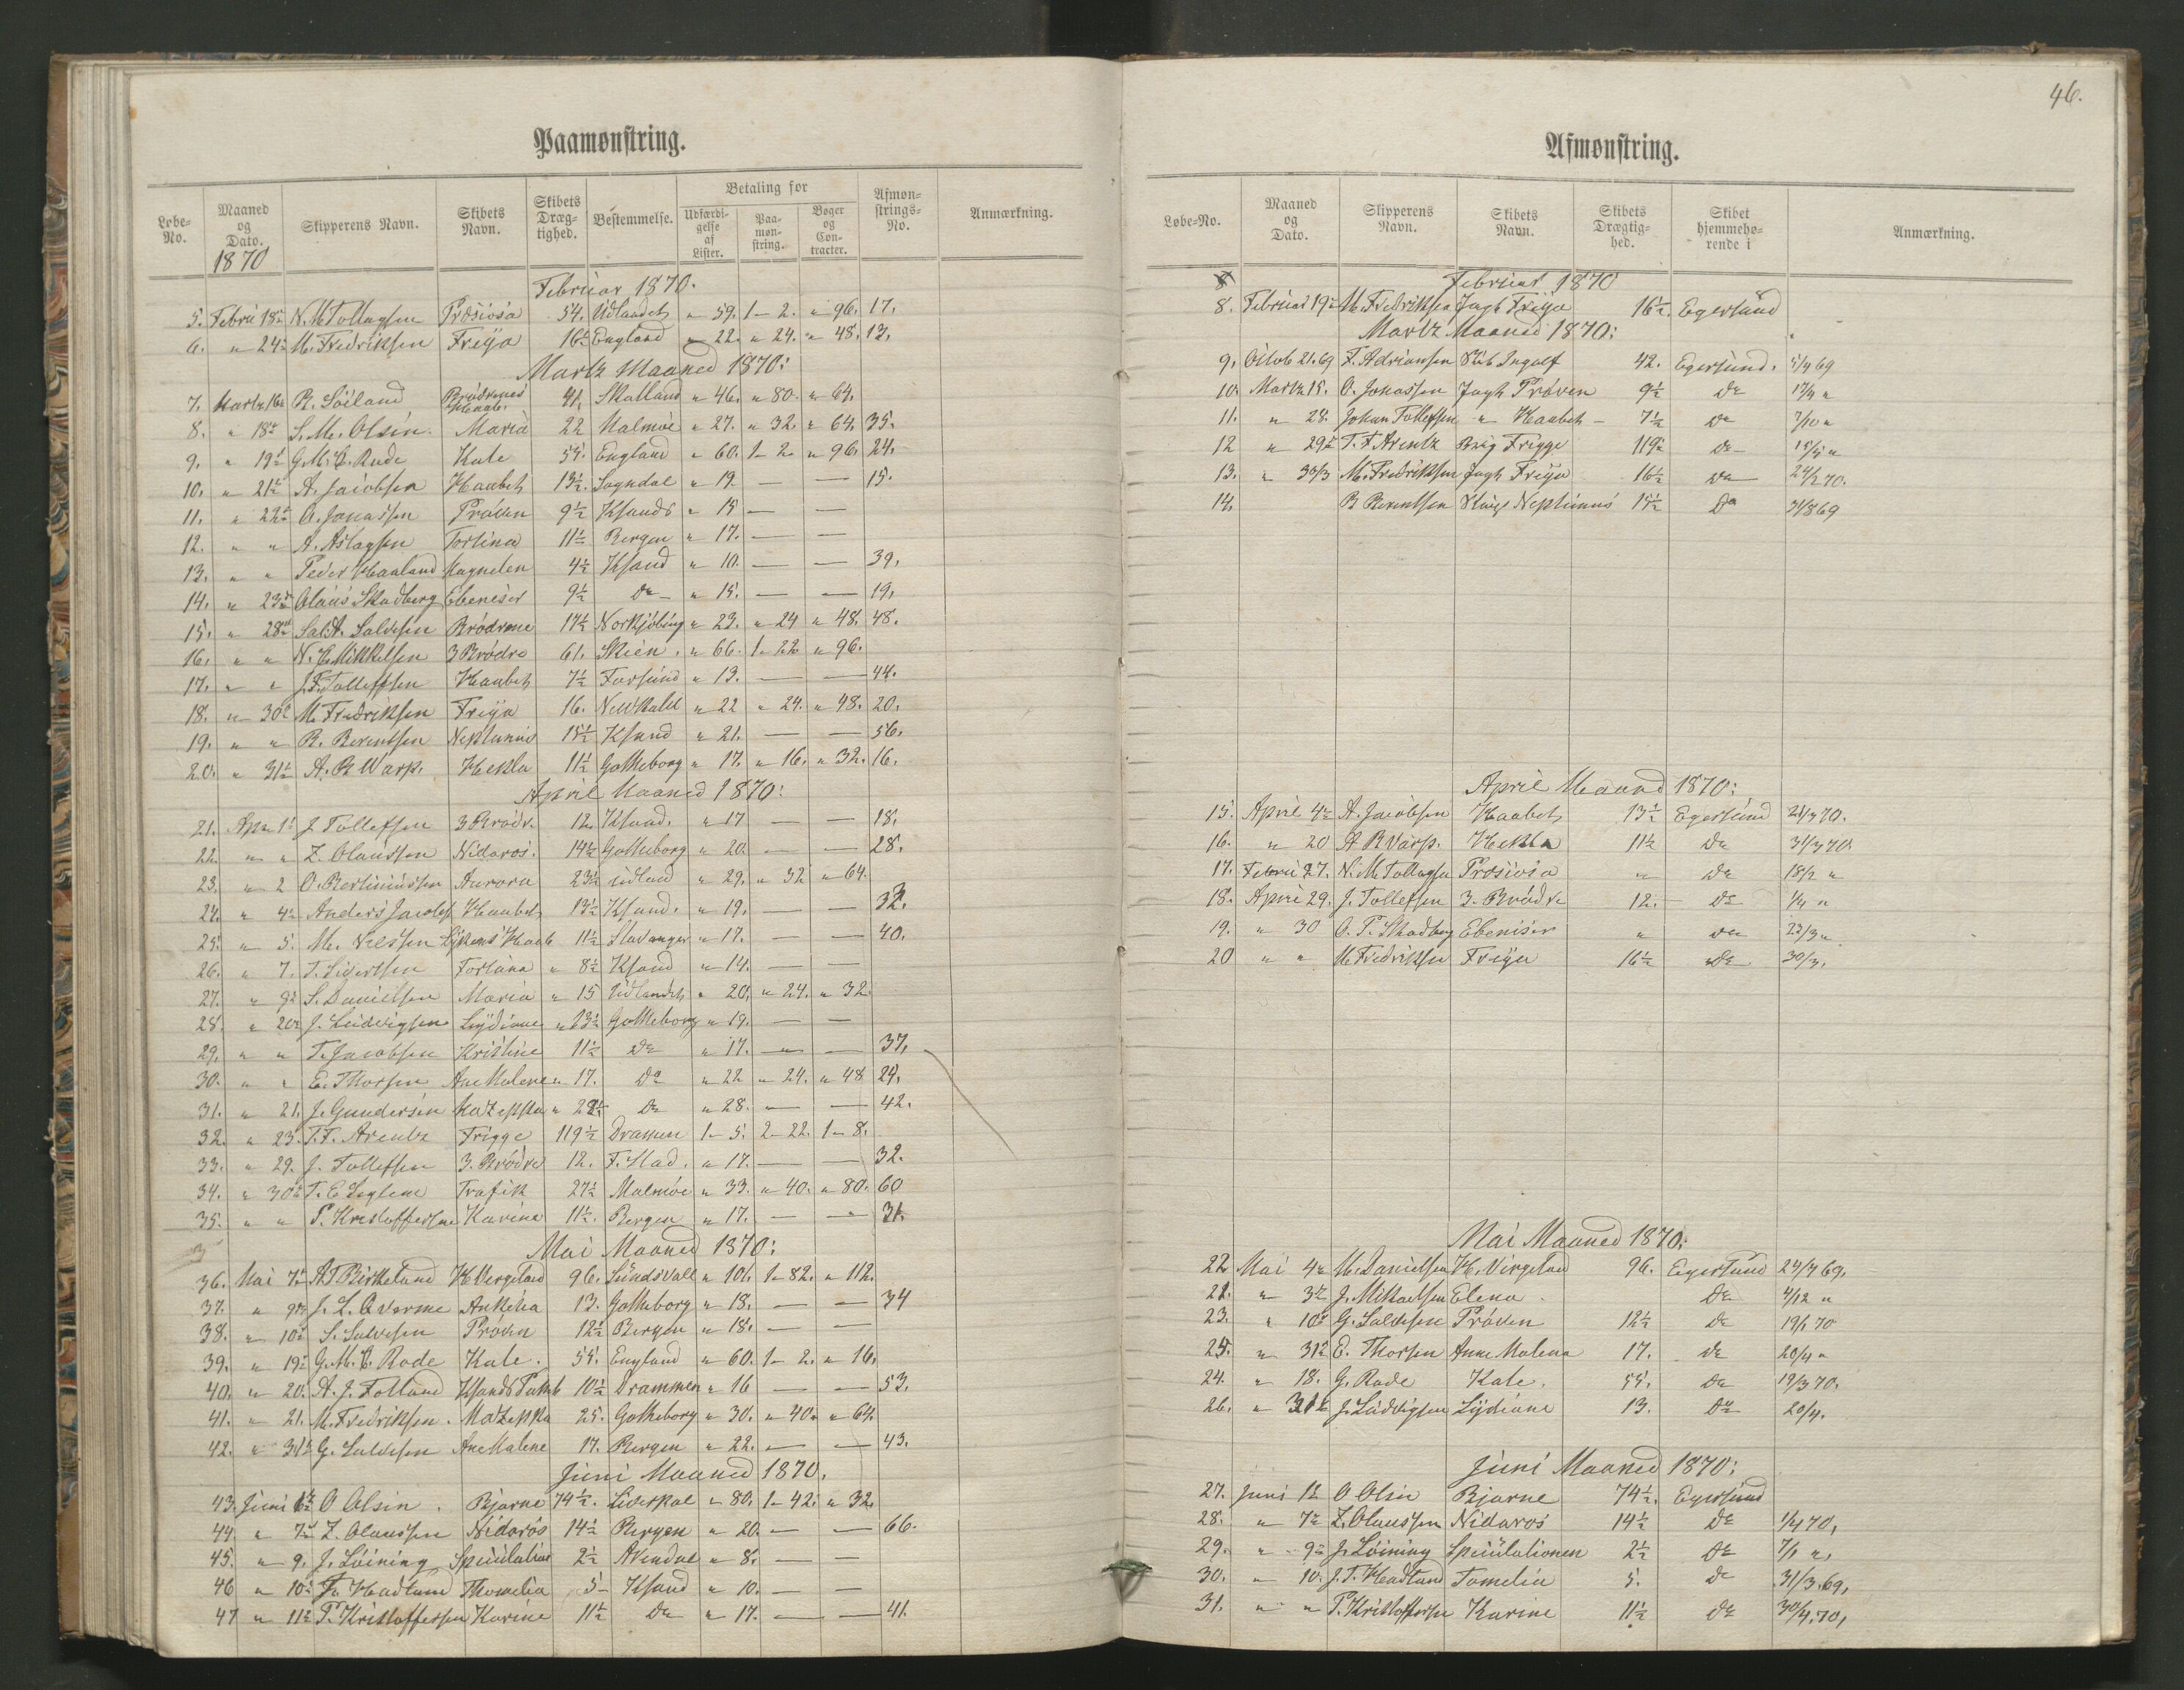 46.
Paamønstring.
Løbe-No. Maaned og Dato. Skipperens Navn. Skibets Navn. Skibets Dræg-tighed. Bestemmelse. Betaling for Udfærdi-gelse af Lister. Paa-møn-string. Bøger og Con-tracter. Afmøn-strings-No. Anmærkning.
1870
Februar 1870.
5. Febru 18 N. M. Tollagsen Prosiosa 54. Udlandet " 59. 1-2. " 96. 17.
6. " 24 M. Fredriksen Freija 16½ England " 22. " 24. " 48. 13.
Martz Maaned 1870:
7. Martz 16 R. Söiland Brödrenes Haab. 41. Skotland " 46. " 80. " 64.
8. " 18 S. M. Olsen. Maria 22 Malmöe " 27. " 32. " 64. 35.
9. " 19 G. M. E. Rode Kate 55. England " 60. 1-2. " 96. 24.
10. " 21 A. Jacobsen Haabet 13½. Sogndal " 19. — — 15.
11. " 22 O. Jonassen Pröven 9½ Ksands " 15 — —
12. " " A. Aslagsen Fortuna 11½ Bergen " 17. — —
13. " " Peder Haaland Magnelen 4½ Ksand " 10. — — 39.
14. " 23 Olaus Skadberg Ebeneser 9½ Do " 15. — — 19.
15. " 28 Sal. A. Salvesen Brödrene 17½ Norkjöbing " 23. " 24 " 48. 48.
16. " " N. E. Mikkelsen 3 Brödre 61. Skien. " 66. 1-22 " 96.
17. " " J. F. Tolleffsen Haabet 7½ Farsund " 13. — — 44.
18. " 30 M. Fredriksen Freija 16. " 22 " 24. " 48. 20.
19. " " R. Berentsen Neptunus 15½ Ksand " 21. — — 56.
20. " 31 A. B. Warp. Hekla 11½ Gotheborg " 17. " 16. " 32. 16.
April Maaned 1870:
21. Apr 1 J. Tollefsen 3 Brödr. 12. Ksand. " 17 — — 18.
22. " " Z. Olaussen Nidaros. 14½ Gotheborg " 20. — — 28.
23. " 2 O. Bertiniussen Aurora 23½ udland " 29. " 32 " 64.
24. " 4 Anders Jacobs. Haabet 13½ Ksand. " 19. — — 32.
25. " 5. M. Nielsen Lykkens Haab 11½ Stavanger " 17. — — 40.
26. " 7. T. Sivertsen Fortuna " 8½ Ksand " 14. — —
27. " 9 S. Danielsen Maria " 15 Udlandet " 20. " 24. " 32.
28. " 20 J. Ludvigsen Lydiane " 13½ Gotheborg " 19. — —
29. " " T. Jacobsen Kristine 11½ Do " 17. — — 37.
30. " " E. Thorsen Ane Malene " 17. Do " 22 " 24. " 48 24.
31. " 21. J. Gundersen Mazeppa " 22½ Do " 28. — — 42.
32. " 23. T. F. Arentz Frigge 119½ Dramen 1-5. 2-22. 1-8.
33. " 29. J. Tollefsen 3. Brödre 12. F. Stad. " 17. — — 32.
34. " 30 T. E. Seglem Trafik 27½ Malmöe " 33. " 40. " 80. 60
35. " " P. Kristoffersen Karine 11½. Bergen " 17. — — 31.
Mai Maaned 1870:
36. Mai 7 A. T. Birkeland H Vergeland 96. Sundsvall " 101. 1-82. " 112.
37. " 9 J. L. Ankelia 13. Gotheborg " 18. — — 34
38. " 10 S. Salvesen Pröven 12½ Bergen " 18. — —
39. " 19 G. M. E. Rode Kate. 55. England " 60. 1-2. " 16.
40. " 20. A. J. Tolland Ksands 10½ Drammen " 16 — — 53.
41. " 21. M. Fredriksen. Mazeppa 25. Gotheborg " 30. " 40. " 64.
42. " 31 G. Salvesen Ane Malene 17. Bergen " 22. — — 43.
Juni Maaned 1870.
43. Juni 1 O Olsen. Bjarne 74½. Liverpol " 80. 1-42. " 32.
44. " 7 Z. Olaussen Nidaros 14½ Bergen " 20. — — 66.
45. " 9. J. Löining Spekulation 2½ Arendal " 8. — —
46 " 10 Hadland Thomelia 5- Ksand " 10. — —
47 " 11 P. Kristoffersen Karine 11½ Do " 17. — — 41.
Afmønstring.
Løbe-No. Maaned og Dato. Skipperens Navn. Skibets Navn. Skibets Drægtig-hed. Skibet hjemmehø-rende i Anmærkning.
Februar 1870
8. Februar 19 M. Fredriksen Jagt Freija 16½. Egersund
Martz Maaned 1870:
9. Octob 21. 69 F. Adriansen Ingolf 42. Egersund. 5/4 69
10. Martz 15. O. Jonassen Jagt Pröven 9½ Do 17/4 "
11. " 28. Johan Tollefsen " Haabet — 7½ Do 7/10 "
12 " 29 T. F. Arentz Brig Frigge 119½ Do
13. " 30/3 M. Fredriksen Jagt Freija 16½ Do 24/2 70.
14. R Berentsen Neptunus 15½ Do 31/8 69
April Maaned 1870:
15. April 4 A. Jacobsen Haabet 13½ Egersund 21/3 70.
16. " 20 A B Varp. Hekla 11½ Do 31/3 70.
17. Februi 27. N. M. Tollagsen Prosiosa " Do 18/2 "
18. April 29. J. Tollefsen 3. Brödre 12. Do 1/4 "
19. " 30 O. P. Skadberg Ebeneser " Do 23/3 "
20 " " M. Fredriksen Freija 16½ Do 30/3.
Mai Maaned 1870:
22 Mai 4 M. Danielsen H. Virgeland 96. Egersund 24/4 69.
21. " 3 J. Mikaelsen Elena. Do 4/12 "
23. " 10 G. Salvesen Pröven 12½ Do 19/1 70
25. " 31 E. Thorsen Anne Malena 17. Do 20/4 "
24. " 18. G. Rode Kate. 55. Do 19/3 70.
26. " 31 J. Ludvigsen Lydiane 13. Do 20/4.
Juni Maaned 1870:
27. Juni 1 O Olsen Bjarne 74½. Egersund
28. " 7 Z. Olaussen Nidaros 14½ Do 1/4 70,
29. " 9 J. Löining Spekulationen 2½ Do 7/1 ",
30. " 10. J. T. Hadland Tomelia 5. Do 31/3. 69,
31. " " P. Kristoffersen Karine 11½ Do 30/4. 70,